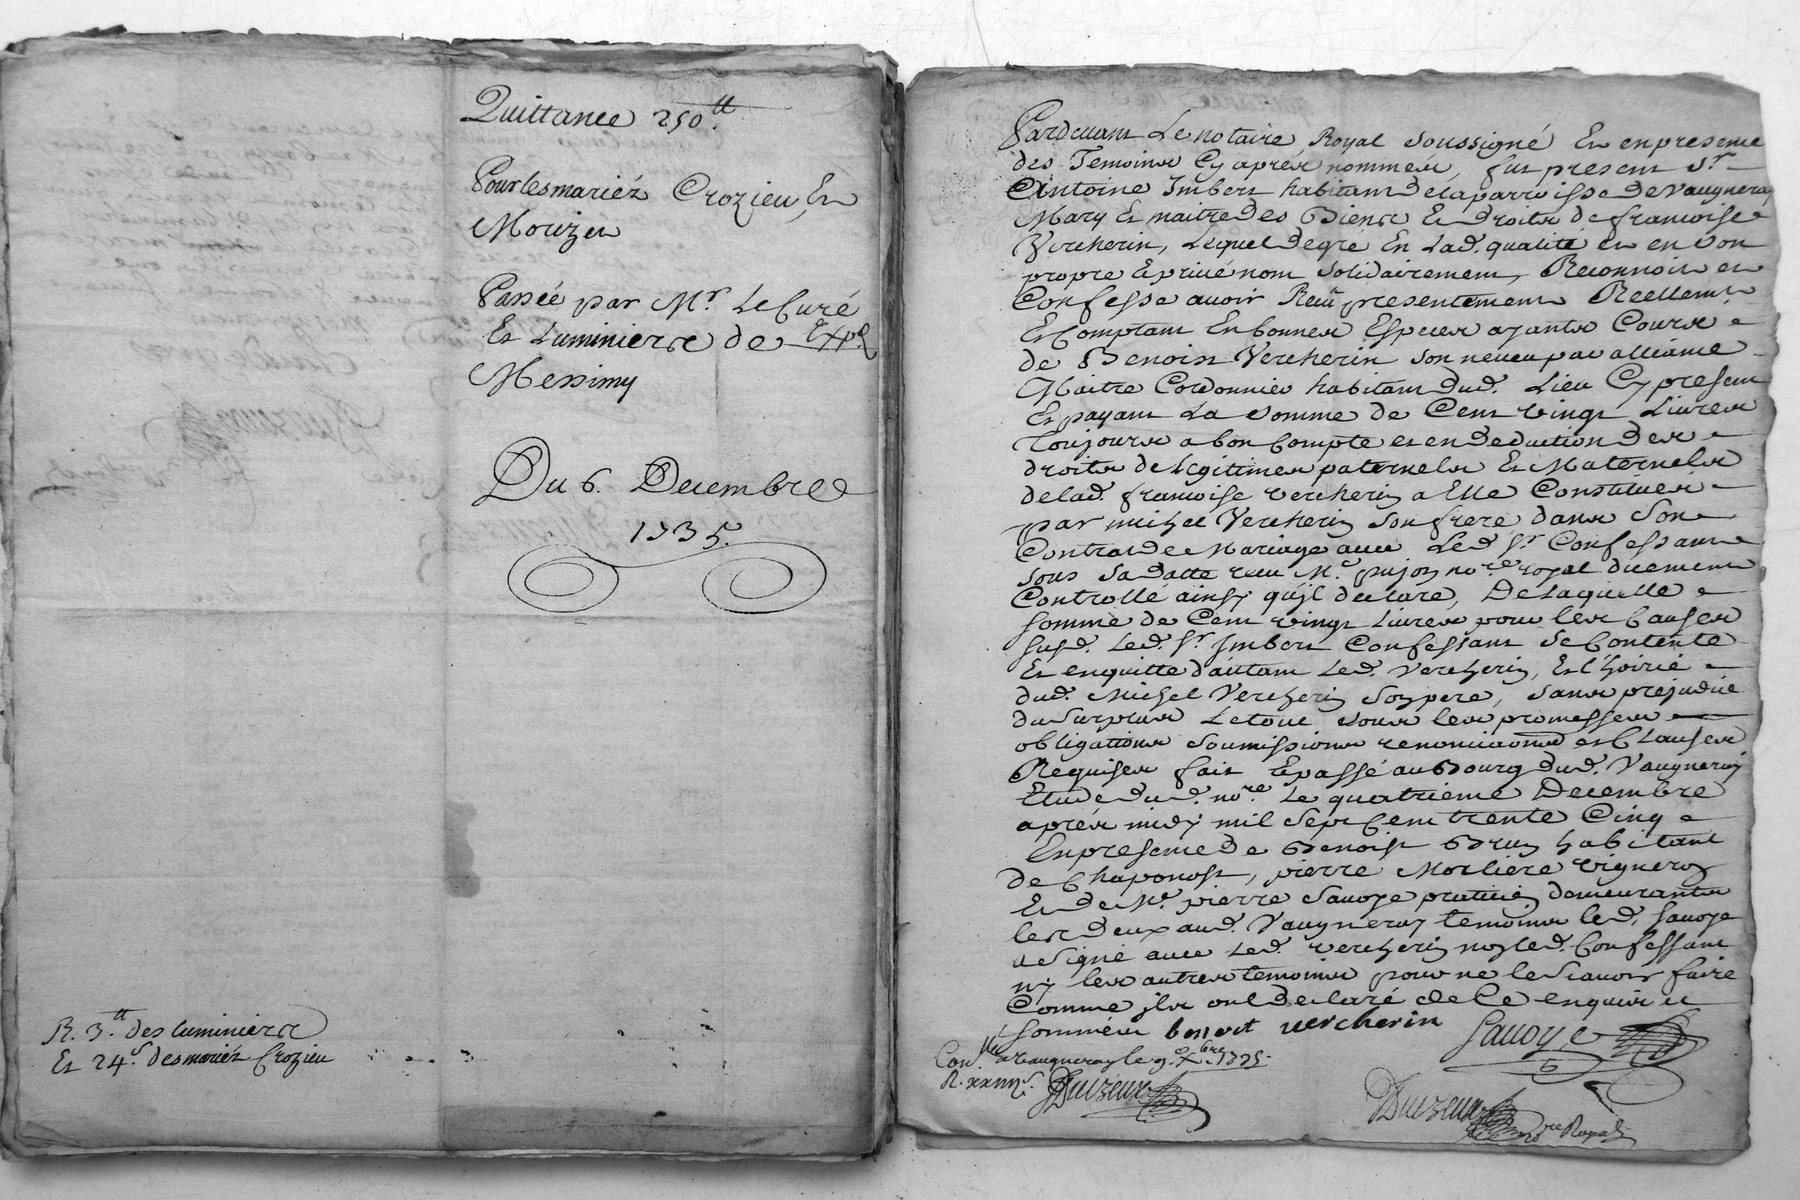 Quittance 250.tt
Pour les mariéz Crozieu, Et
Mouzeu
Passée par Mr. Le Curé
Et Luminiers de
Messimy
Du 6. Decembre
1735.
R. 3.tt des luminiers
Et 24.s des mariéz Crozieu
Pardevant Le notaire Royal soussigné Et en presence
des Temoins Cy aprés nommés, fut present Sr.
Antoine Imbert habitant de la parroisse de Vaugneray
Mary Et maitre des Biens Et droits de francoise
Vercherin, Lequel de gré En Lad. qualité et en son
propre & privé nom solidairement, Reconnoit et
Confesse avoir Reçû presentement Reellemt.
Et Comptant En bonnes Especes ayants Cours
de Benoist Vercherin son neveu par alliance
Maitre Cordonnier habitant dud. Lieu Cy present
Et payant La somme de Cent vingt Livres
Toujours a bon Compte et en deduction des
droits de Legitimes paternels Et Maternels
de lad. francoise vercherin a Elle Constitués
par michel Vercherin son frere dans Son
Contrat de Mariage avec Led. Sr. Confessant
sous sa datte receu Me. pujon nore. royal duement
Controllé ainsy qu'jl declare, De laquelle
somme de Cent vingt Livres pour les Causes
susd. Led. Sr. Jmbert Confessant se Contente
Et en quitte d'autant Led. Vercherin, Et l'hoirie
dud. Michel Vercherin Son pere, sans prejudice
du Surplus Le tout sous les promesses
obligations soumissions renonciaons et Clauses
Requises fait & passé au Bourg dud. Vaugneray
Etude dud. nore. Le quatrieme Decembre
aprés midy mil Sept Cent trente Cinq
En presence de Benoist Brun habitant
de Chaponost, pierre Morliere vigneron
Et de Me. pierre Savoye praticien demeurants
les deux aud. Vaugneray temoins led. Savoye
a signé avec Led. vercherin non led. Confessant
ny les autres temoins pour ne le Scavoir faire
Comme jls ont declaré de Ce enquis et
Sommés benoit vercherin Savoye
Conlle. a vaugneray le 9.e Xbre. 1735.